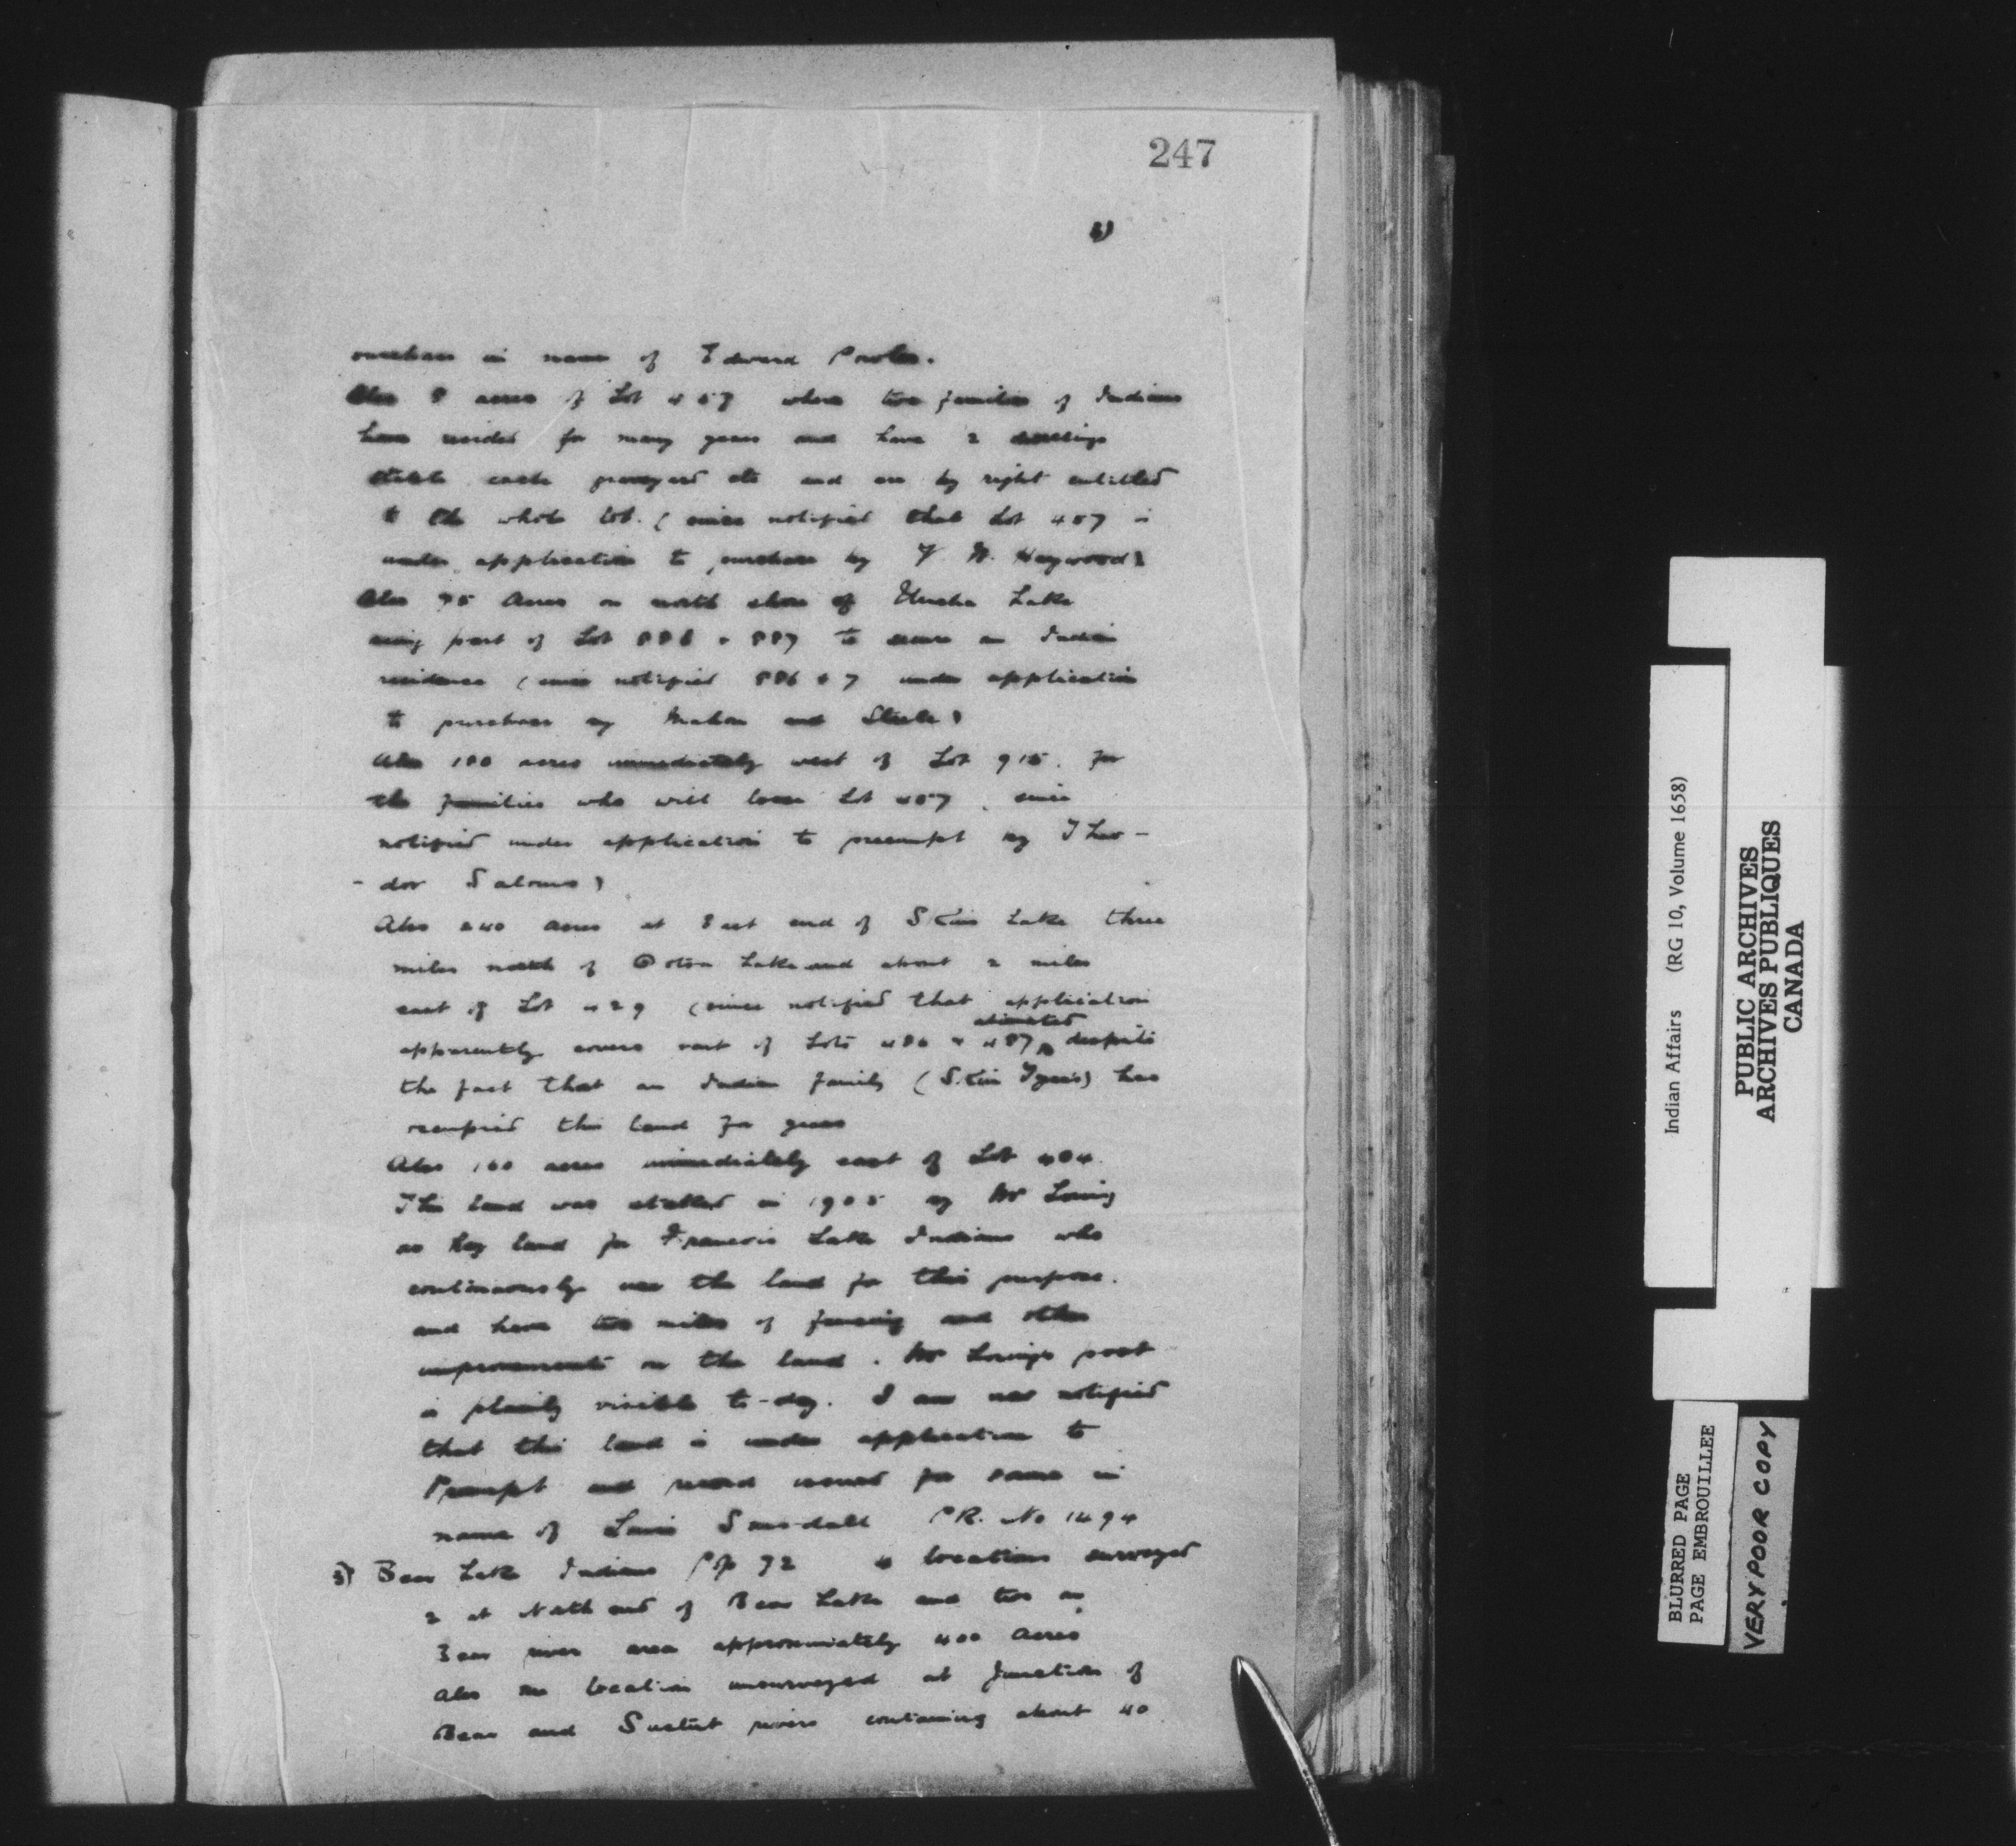 247
purchase in name of Edward Powler.
Also 8 acres of Lot 457 where two families of Indians
have resided for many years and have 2 dwellings
stable cache graveyard etc and are by right entitled
to the whole lot. (since notified that Lot 457 is
under application to purchase by W. Heywood)
Also 95 Acres on north shore of Lake
being part of Lot 886 & 887 to secure an Indian
residence (since notified 886 & 7 under application
to purchase by and Steele)
Also 100 acres immediately west of Lot 915. for
the families who will loose Lot 457. since
notified under application to preempt by Theo-
-dor Salomo)
Also 240 acres at East end of Skins Lake three
miles north of Ootsa Lake and about 2 miles
east of Lot 429 (since notified that application
apparently covers part of Lots 486 & 487 despite
the fact that an Indian family (Skin Tyee's) has
occupied this land for years
Also 160 acres immediately east of Lot 404.
This land was staked in 1905 by Mr Loring
as hay land for Francois Lake Indians who
continuously use the land for this purpose.
and have two miles of fencing and other
improvements on the land. Mr Loring's post
is plainly visible to-day. I am now notified
that this land is under application to
Preempt and record issued for same in
name of PR. No 1494
3) Bear Lake Indians Pop 72 4 locations surveyed
2 at North end of Bear Lake and two on
Bear river area approximately 400 Acres
Also one location unsurveyed at junction of
Bear and Sustut rivers containing about 40
Indian Affairs (RG 10, Volume 1658)
PUBLIC ARCHIVES
ARCHIVES PUBLIQUES
CANADA
BLURRED PAGE
PAGE EMBROUILLEE
VERY POOR COPY